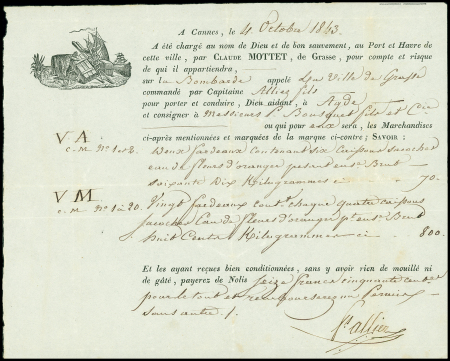 A Cannes, le 4 Octobre 1843.
A été chargé au nom de Dieu et de bon sauvement, au Port et Havre de
cette ville, par CLAUDE MOTTET, de Grasse, pour compte et risque
de qui il appartiendra,
sur la Bombarde appelé La Ville de Grasse
commandé par Capitaine Allier fils
pour porter et conduire, Dieu aidant, à Agde
et consigner à Messieurs Bousquet fils et Cie
ou qui pour eux sera, les Marchandises
ci-après mentionnées et marquées de la marque ci-contre; SAVOIR:
V A
c. m. N° 1 et 2. Deux fardeaux contenant six caissons
eau de fleurs d'oranger pesant Brut
soixante Dix Kilogrammes ci 70.
V M
c. m. N° 1 à 20. Vingt fardeaux cont. chaque quatre caissons
eau de fleurs d'oranger Brut
huit Cents Kilogrammes ci 800.
Et les ayant reçues bien conditionnées, sans y avoir rien de mouillé ni
de gâté, payerez de Nolis Seize francs cinquante cent.
pour le tout et
sans autre
Allier